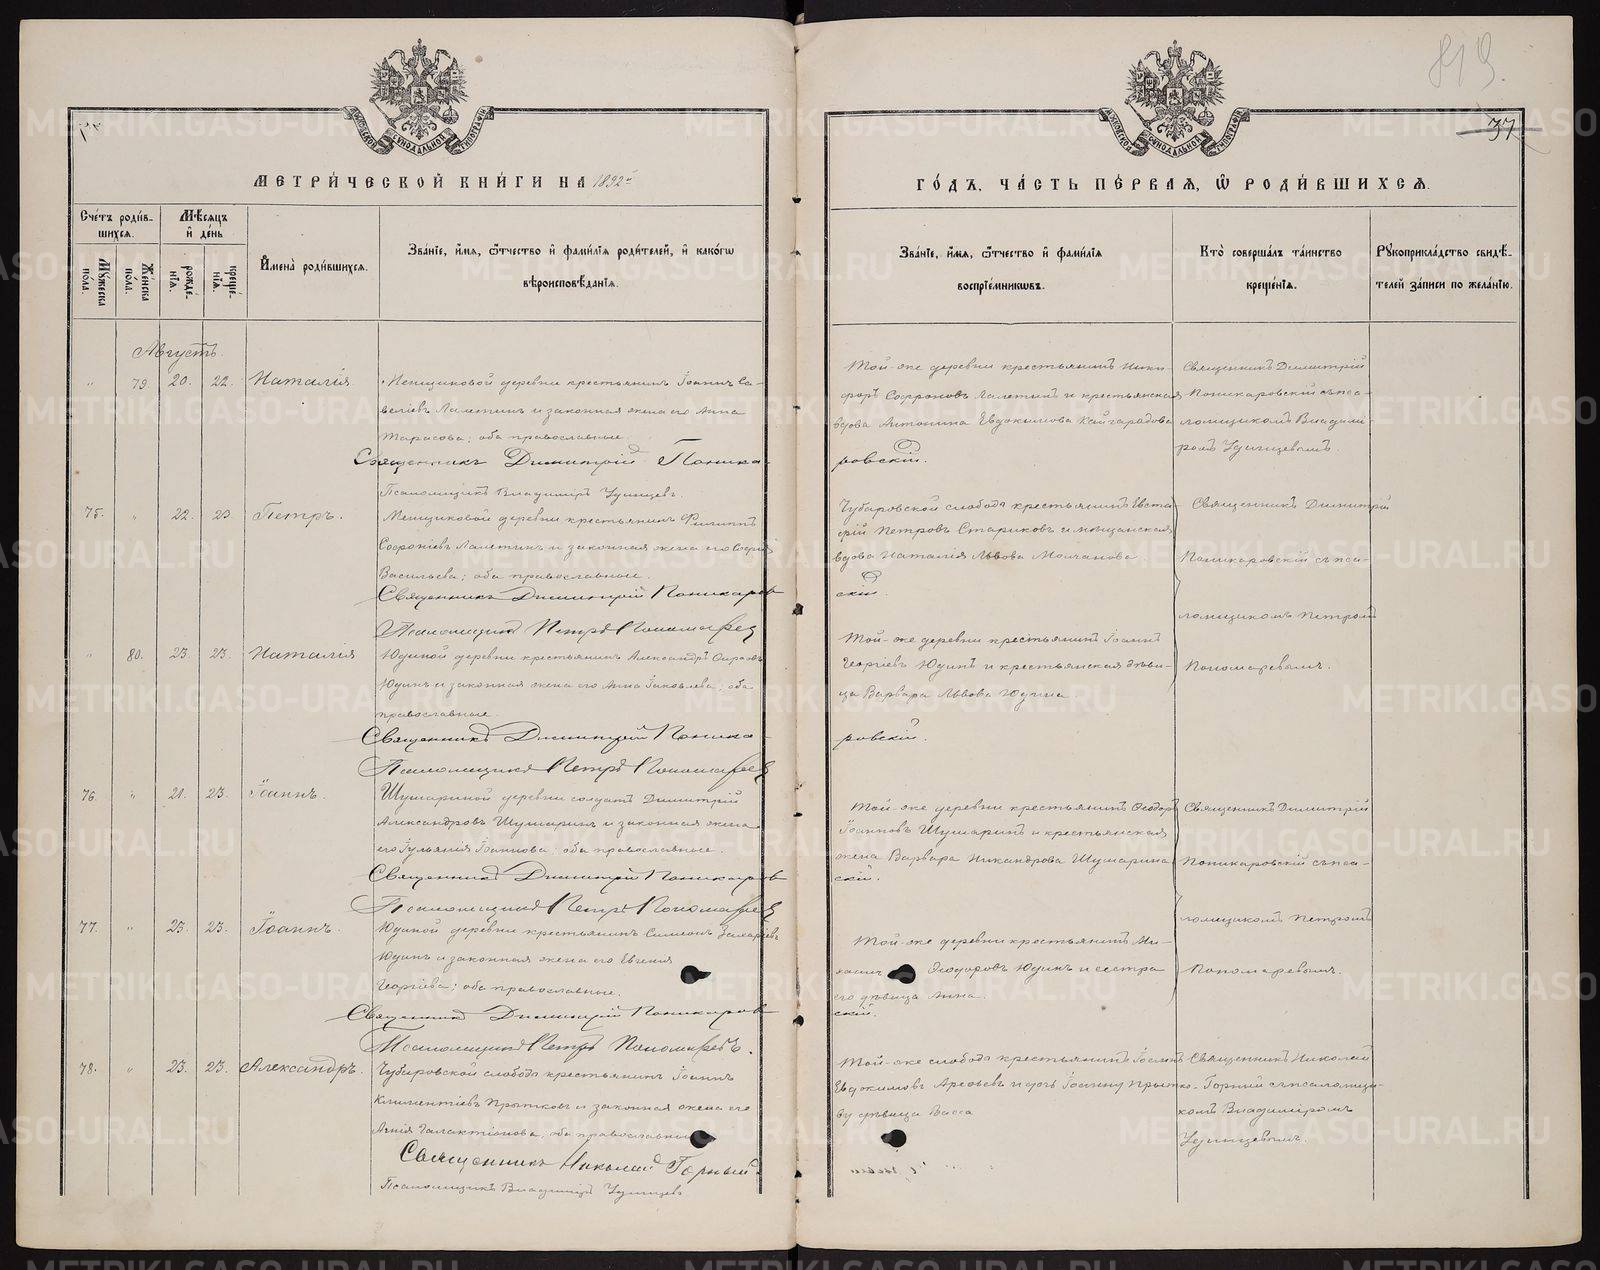 819.
37
МЕТРИ́ЧЕСКОЙ КНИ́ГИ НА 1892 й
Сче́тъ роди́в-
шихся.
Мѣ́сяцъ
и҆ де́нь
И҆мена̀ роди́вшихся.
Зва́нїе, и҆́мя, ѻ҆́тчество и҆ фами́лїя роди́телей, и҆ како́гѡ
вѣроисповѣ́данїя.
Му́жеска
по́ла.
Же́нска
по́ла.
рожде́-
нїя.
креще́-
нїя.
Августъ.
" 79. 20. 22. Наталія
Менщиковой деревни крестьянинъ Іоаннъ Са-
веліевъ Ламетинъ и законная жена его Анна
Тарасова; оба православные.
Священникъ Димитрій Поника-
Псаломщикъ Владиміръ Удинцевъ.
75. " 22. 23. Петръ.
Менщиковой деревни крестьянинъ Филиппъ
Софроніевъ Ламетинъ и законная жена его Софія
Васильева; оба православные.
Священникъ Димитрій Поникаров
Псаломщикъ Петръ Пономарев
" 80. 23. 23. Наталія
Юдиной деревни крестьянинъ Александръ
Юдинъ и законная жена его Анна Іаковлева; оба
православные.
Священникъ Димитрій Поника-
Псаломщикъ Петръ Пономарев
76. " 21. 23. Іоаннъ.
Шушариной деревни солдатъ Димитрій
Александровъ Шушаринъ и законная жена
его Іуліанія Іоаннова; оба православные.
Священникъ Димитрій Поникаров
Псаломщикъ Петръ Пономарев
77. " 23. 23. Іоаннъ.
Юдиной деревни крестьянинъ Симеонъ Захаріевъ
Юдинъ и законная жена его Евгенія
Георгіева; оба православные.
Священникъ Димитрій Поникаров
Псаломщикъ Петръ Пономаревъ.
78. " 23. 23. Александръ.
Чубаровской слободы крестьянинъ Іоаннъ
Климентіевъ Прытковъ и законная жена его
Агнія Галактіонова; оба православные
Священникъ Николай Горный.
Псаломщикъ Владиміръ Удинцевъ
ГО́ДЪ, ЧА́СТЬ ПЕ́РВАЯ, Ѽ РОДИ́ВШИХСЯ.
Зва́нїе, и҆́мя, ѻ҆́тчество и҆ фами́лїя
воспрїе́мникѡвъ.
Кто̀ соверша́лъ та́инство
креще́нїя.
Рꙋкоприкла́дство свидѣ́-
телей за́писи по жела́нїю.
Той-же деревни крестьянинъ Ники-
форъ Софроновъ Ламетинъ и крестьянская
вдова Антонина Евдокимова Кайгарадова
ровскій.
Священникъ Димитрій
Поникаровскій съ пса-
ломщикомъ Владими-
ромъ Удинцевымъ.
Чубаровской слободы крестьянинъ Евста-
фій Петровъ Стариковъ и мѣщанская
вдова Наталія Львова Молчанова
скій.
Священникъ Димитрій
Поникаровскій съ пса-
ломщикомъ Петромъ
Пономаревымъ.
Той-же деревни крестьянинъ Іоаннъ
Георгіевъ Юдинъ и крестьянская дѣви-
ца Варвара Львова Юдина
ровскій.
Той-же деревни крестьянинъ Ѳеодоръ
Іоанновъ Шушаринъ и крестьянская
жена Варвара Никандрова Шушарина
скій.
Священникъ Димитрій
Поникаровскій съ пса-
ломщикомъ Петромъ
Пономаревымъ.
Той-же деревни крестьянинъ Ми-
хаилъ Ѳеодоровъ Юдинъ и сестра
его дѣвица Анна.
скій.
Той-же слободы крестьянинъ Іосифъ
Евдокимовъ Арефьевъ и дочь Іоанну Прытко-
ву дѣвица Васса
Священникъ Николай
Горный съ псаломщи-
комъ Владиміромъ
Удинцевымъ.
METRIKI.GASO-URAL.RU